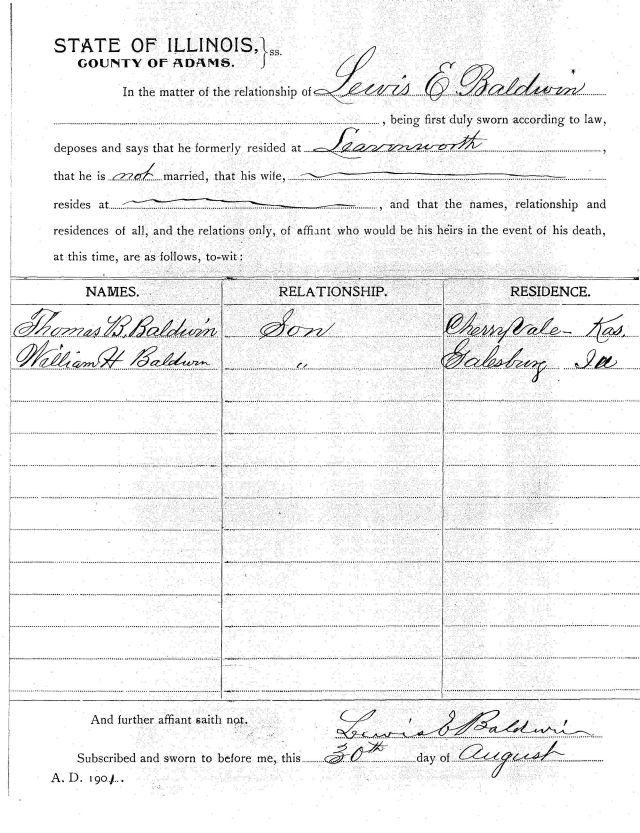 STATE OF ILLINOIS, } ss.
COUNTY OF ADAMS.
In the matter of the relationship of Lewis E Baldwin
, being first duly sworn according to law,
deposes and says that he formerly resided at Leavenworth ,
that he is not married, that his wife,
resides at , and that the names, relationship and
residences of all, and the relations only, of affiant who would be his heirs in the event of his death,
at this time, are as follows, to-wit:
NAMES. RELATIONSHIP. RESIDENCE.
Thomas B. Baldwin Son Cherry Vale - Kas.
William H Baldwin " Galesburg Ill
And further affiant saith not.
Lewis E Baldwin
Subscribed and sworn to before me, this 30th day of August
A. D. 1901.